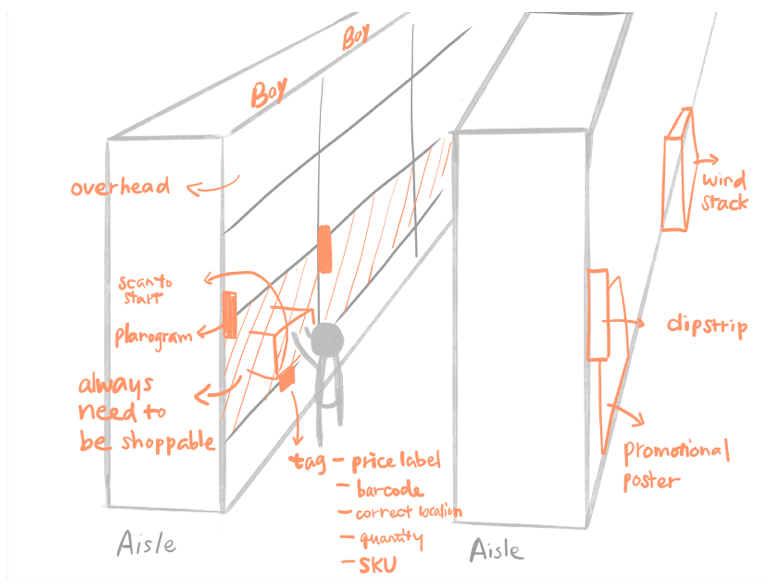 Bay
Bay
overhead
scan to
start
planogram
always
need to
be shoppable
tag - price label
- barcode
- correct location
- quantity
- SKU
Aisle
wind
stack
clipstrip
promotional
poster
Aisle